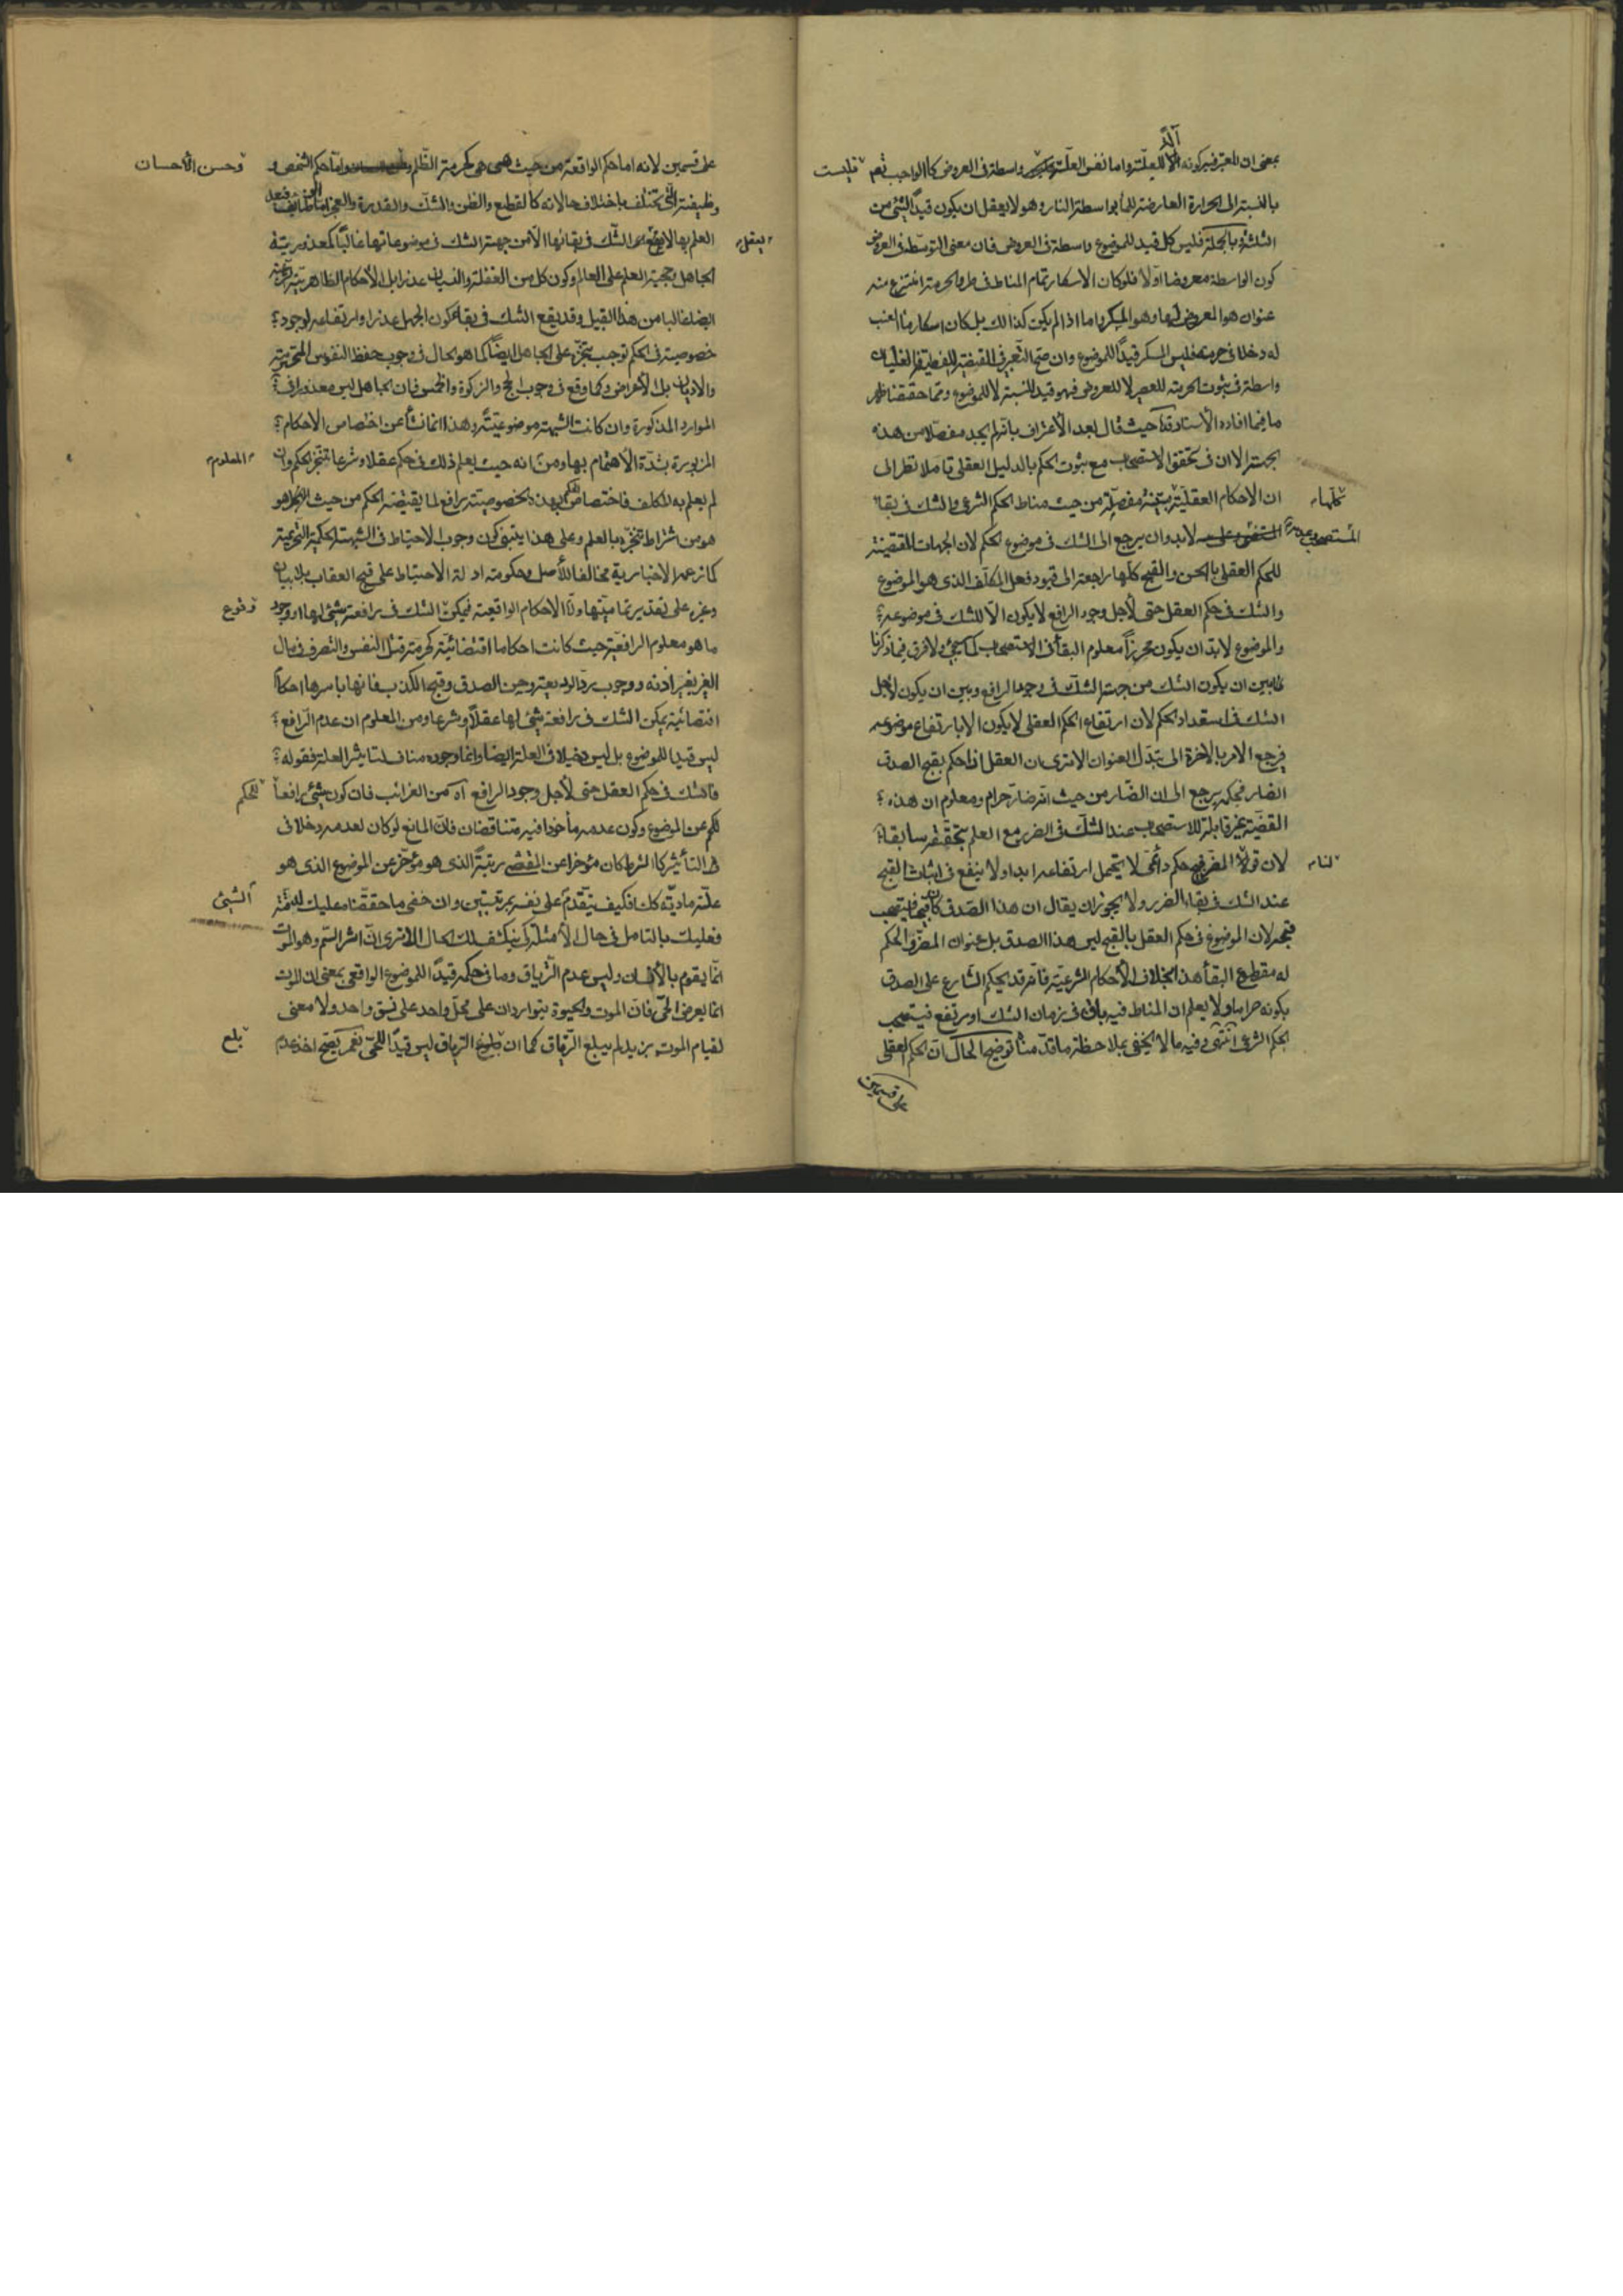 بمعنى ان المعتبر فيه كونه آلة للعلية واما نفس العلة واسطة في العروض كالواجب تعم فليست
بالنسبة الى الحرارة العارضة للماء بواسطة النار وهو لا يعقل ان يكون قيدا لشيء من
الثلثة وبالجملة فليس كل قيد للموضوع واسطة في العروض فان معنى التوسط في العروض
كون الواسطة معروضا اولا فلو كان الاسكار تمام المناط في طرو الحرمة انتزع منه
عنوان هو المعروض لها وهو المسكر واما اذا لم يكن كذلك بل كان اسكار ماء العنب
له دخلا في حرمته فليس المسكر قيدا للموضوع وان صح التعبير في القضية اللفظية فالغليان
واسطة في ثبوت الحرمة للعصير لا للعروض فهو قيد للنسبة لا للموضوع ومما حققنا ظهر
ما فيما افاده الاستاد قده حيث قال بعد الاعتراف بانه لم يجد مفصلا من هذه
الجهة الا ان في تحقق الاستصحاب مع ثبوت الحكم بالدليل العقلي تاملا نظرا الى
ان الاحكام العقلية كلها مبينة مفصلة من حيث مناط الحكم الشرعي والشك في بقاء
المستصحب وعدمه لابد وان يرجع الى الشك في موضوع الحكم لان الجهات المقتضية
للحكم العقلي بالحسن والقبح كلها راجعة الى قيود فعل المكلف الذي هو الموضوع
والشك في حكم العقل حتى لاجل وجود الرافع لا يكون الا للشك في موضوعه
والموضوع لابد ان يكون محرزا معلوم البقاء في الاستصحاب كما سيجئ ولا فرق فيما ذكرنا
فيما بين ان يكون الشك من جهة الشك في وجود الرافع وبين ان يكون لاجل
الشك في استعداد الحكم لان ارتفاع الحكم العقلي لا يكون الا بارتفاع موضوعه
فيرجع الامر بالاخرة الى تبدل العنوان الا ترى ان العقل اذا حكم بقبح الصدق
الضار فحكمه يرجع الى ان الضار من حيث انه ضار حرام ومعلوم ان هذه
القضية غير قابلة للاستصحاب عند الشك في الضرر مع العلم بتحققه سابقا
لان قولنا المضر قبيح حكم دائمي لا يحتمل ارتفاعه ابدا ولا ينفع في اثبات القبح
عند الشك في بقاء الضرر ولا يجوز ان يقال ان هذا الصدق كان قبيحا فيستصحب
قبحه لان الموضوع في حكم العقل بالقبح ليس هذا الصدق بل عنوان المضر والحكم
له مقطوع البقاء هذا بخلاف الاحكام الشرعية فانه قد يحكم الشارع على الصدق
بكونه حراما ولا يعلم ان المناط فيه باق في زمان الشك او مرتفع فيستصحب
الحكم الشرعي انتهى وفيه ما لا يخفى بملاحظة ما قدمنا توضيح الحال ان الحكم العقلي
على قسمين
على قسمين لانه اما حكم الواقعة من حيث هي هي كحرمة الظلم وحسن الاحسان واما حكم الشخص و
وظيفته التي تختلف باختلاف حالاته كالقطع والظن والشك والقدرة والعجز
العلم بها لا يعقل الشك في بقائها الا من جهة الشك في موضوعاتها غالبا كمعذورية
الجاهل وحجية العلم على العالم وكون كل من الغفلة والنسيان عذرا بل الاحكام الظاهرية الشرعية
ايضا غالبا من هذا القبيل وقد يقع الشك في بقاء كون الجهل عذرا وارتفاعه لوجود
خصوصية في الحكم توجب تنجزه على الجاهل ايضا كما هو الحال في وجوب حفظ النفوس المحترمة
والاديان بل الاعراض وكما وقع في وجوب الحج والزكوة والخمس فان الجاهل ليس معذورا في
الموارد المذكورة وان كانت الشبهة موضوعية وهذا انما نشأ عن اختصاص الاحكام
المزبورة بشدة الاهتمام بها ومن انه حيث يعلم ذلك في حكم عقلا وشرعا تنجز الحكم المعلوم وان
لم يعلم به المكلف فاختصاص الحكم بهذه الخصوصية رافع لما يقتضيه الحكم من حيث هو هو
من شرائط تنجزه بالعلم وعلى هذا يبتني كون وجوب الاحتياط في الشبهة الحكمية التحريمية
كما زعمه الاخبارية مخالفا للاصل وحكومة ادلة الاحتياط على قبح العقاب بلا بيان
وغيره على تقدير تماميتها واما الاحكام الواقعية فيمكن الشك في رافعية شيء لها او وقوع
ما هو معلوم الرافعية حيث كانت احكاما اقتضائية كحرمة قتل النفس والتصرف في مال
الغير بغير اذنه ووجوب رد الوديعة وحسن الصدق وقبح الكذب فانها باسرها احكام
اقتضائية يمكن الشك في رافعية شيء لها عقلا وشرعا ومن المعلوم ان عدم الرافع
ليس قيدا للموضوع بل ليس دخيلا في العلة ايضا وانما وجوده مناف لتاثير العلة فقوله
فالشك في حكم العقل حتى لاجل وجود الرافع اه من الغرائب فان كون شيء رافعا للحكم
عن الموضوع وكون عدمه مأخوذا فيه متناقضان فان المانع لو كان لعدمه دخلا في
التأثير كالشرط كان مؤخرا عن المقتضي رتبة الذي هو مؤخر عن الموضوع الذي هو
علة مادية له فكيف يتقدم الشيء على نفسه بمرتبتين وان خفى ما حققناه عليك
فعليك بالتامل في حال الامثلة كي ينكشف لك الحال الا ترى ان اثر السم وهو الموت
انما يقوم بالانسان وليس عدم الترياق وما في حكمه قيدا للموضوع الواقعي بمعنى ان الموت
انما يعرض الحي فان الموت والحيوة يتواردان على محل واحد على نسق واحد ولا معنى
لقيام الموت بزيد لم يبلع الترياق كما ان بلع الترياق ليس قيدا للحي نعم يصح اخذ عدم